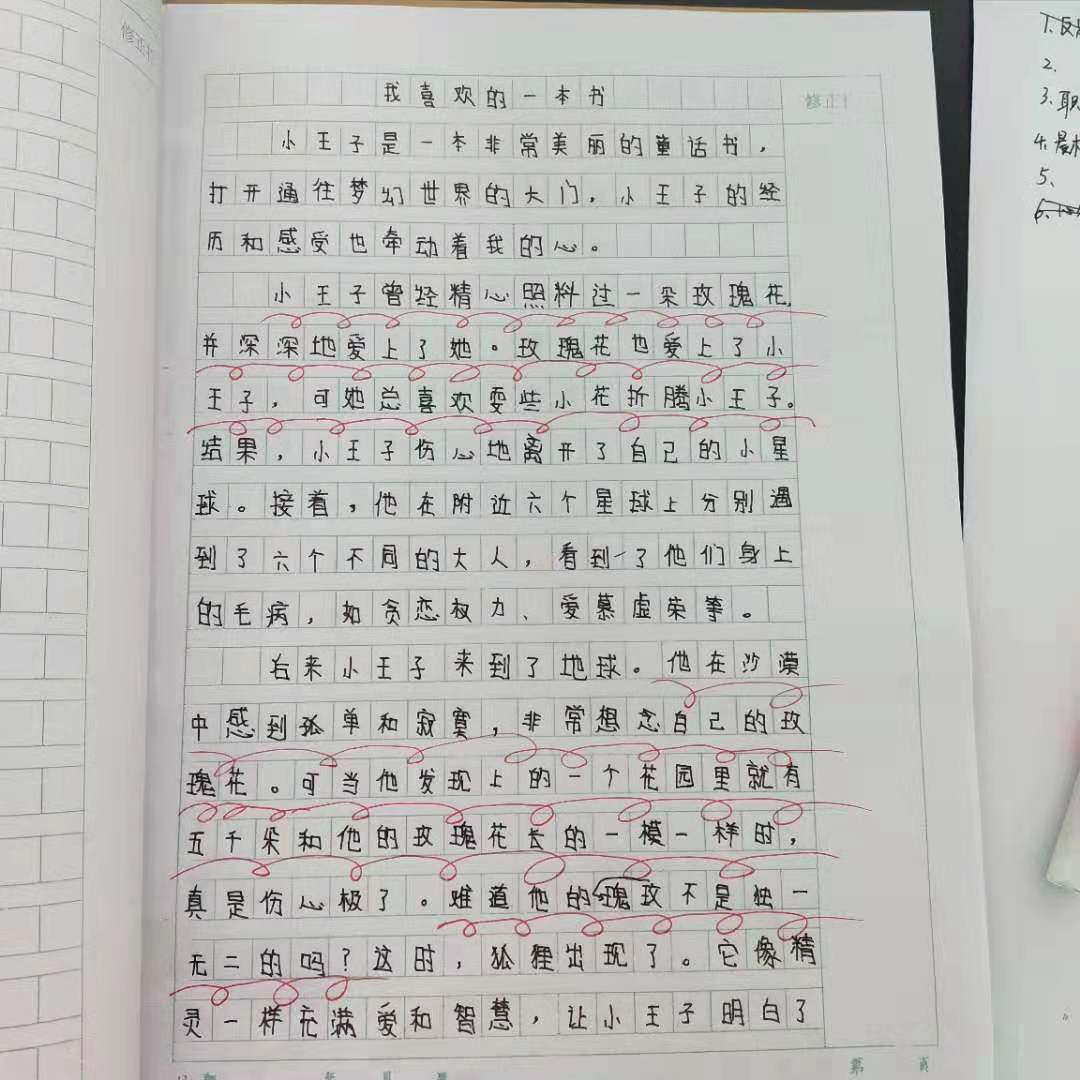 我喜欢的一本书
修正
小王子是一本非常美丽的童话书，
打开通往梦幻世界的大门，小王子的经
历和感受也牵动着我的心。
小王子曾经精心照料过一朵玫瑰花，
并深深地爱上了她。玫瑰花也爱上了小
王子，可她总喜欢耍些小花折腾小王子。
结果，小王子伤心地离开了自己的小星
球。接着，他在附近六个星球上分别遇
到了六个不同的大人，看到了他们身上
的毛病，如贪恋权力、爱慕虚荣等。
后来小王子来到了地球。他在沙漠
中感到孤单和寂寞，非常想念自己的玫
瑰花。可当他发现上的一个花园里就有
五千朵和他的玫瑰花长的一模一样时，
真是伤心极了。难道他的瑰玫不是独一
无二的吗？这时，狐狸出现了。它像精
灵一样充满爱和智慧，让小王子明白了
第 页
修正
1.反
2.
3.职
4.最
5、